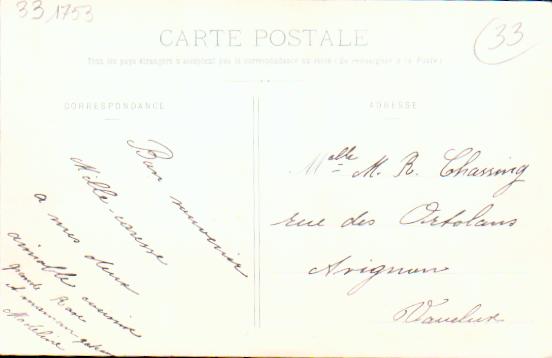 33 1753
33
CARTE POSTALE
Tous les pays étrangers n'acceptent pas la correspondance au recto (Se renseigner à la Poste)
CORRESPONDANCE
ADRESSE
Bon souvenir
Mille caresse
a mes deux
aimable cousine
grande Rose
et maman
Madeleine
Melle M. R. Chassing
rue des Ortolans
Avignon
Vaucluse